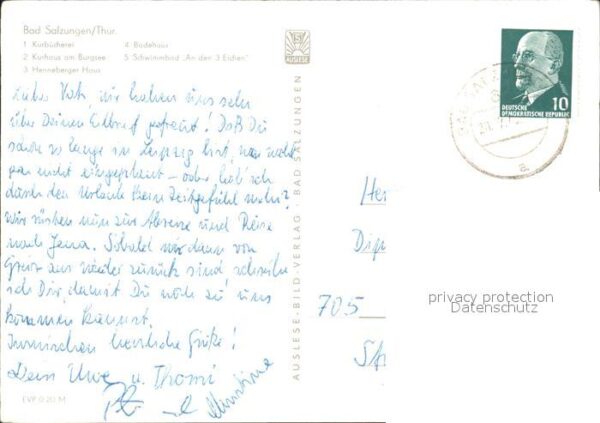 Bad Salzungen/Thür.
1 Kurbücherei 4 Badehaus
2 Kurhaus am Burgsee 5 Schwimmbad „An den 3 Eichen"
3 Henneberger Haus
AUSLESE
Lieber Kurt, wir haben uns sehr
über Deinen Eilbrief gefreut! Daß Du
schon so lange in Leipzig bist, war wohl
gar nicht eingeplant – oder hab' ich
durch den Urlaub kein Zeitgefühl mehr?
Wir rüsten nun zur Abreise und Reise
nach Jena. Sobald wir dann von
Greiz aus wieder zurück sind schreibe
ich Dir, damit Du noch zu uns
kommen kannst.
Inzwischen herzliche Grüße!
Dein Uwe u. Thomi
Christine
EVP 0.20 M
AUSLESE-BILD-VERLAG · BAD SALZUNGEN
10
DEUTSCHE
DEMOKRATISCHE REPUBLIK
BAD SAL
a
Her
Dip
705
privacy protection
Datenschutz